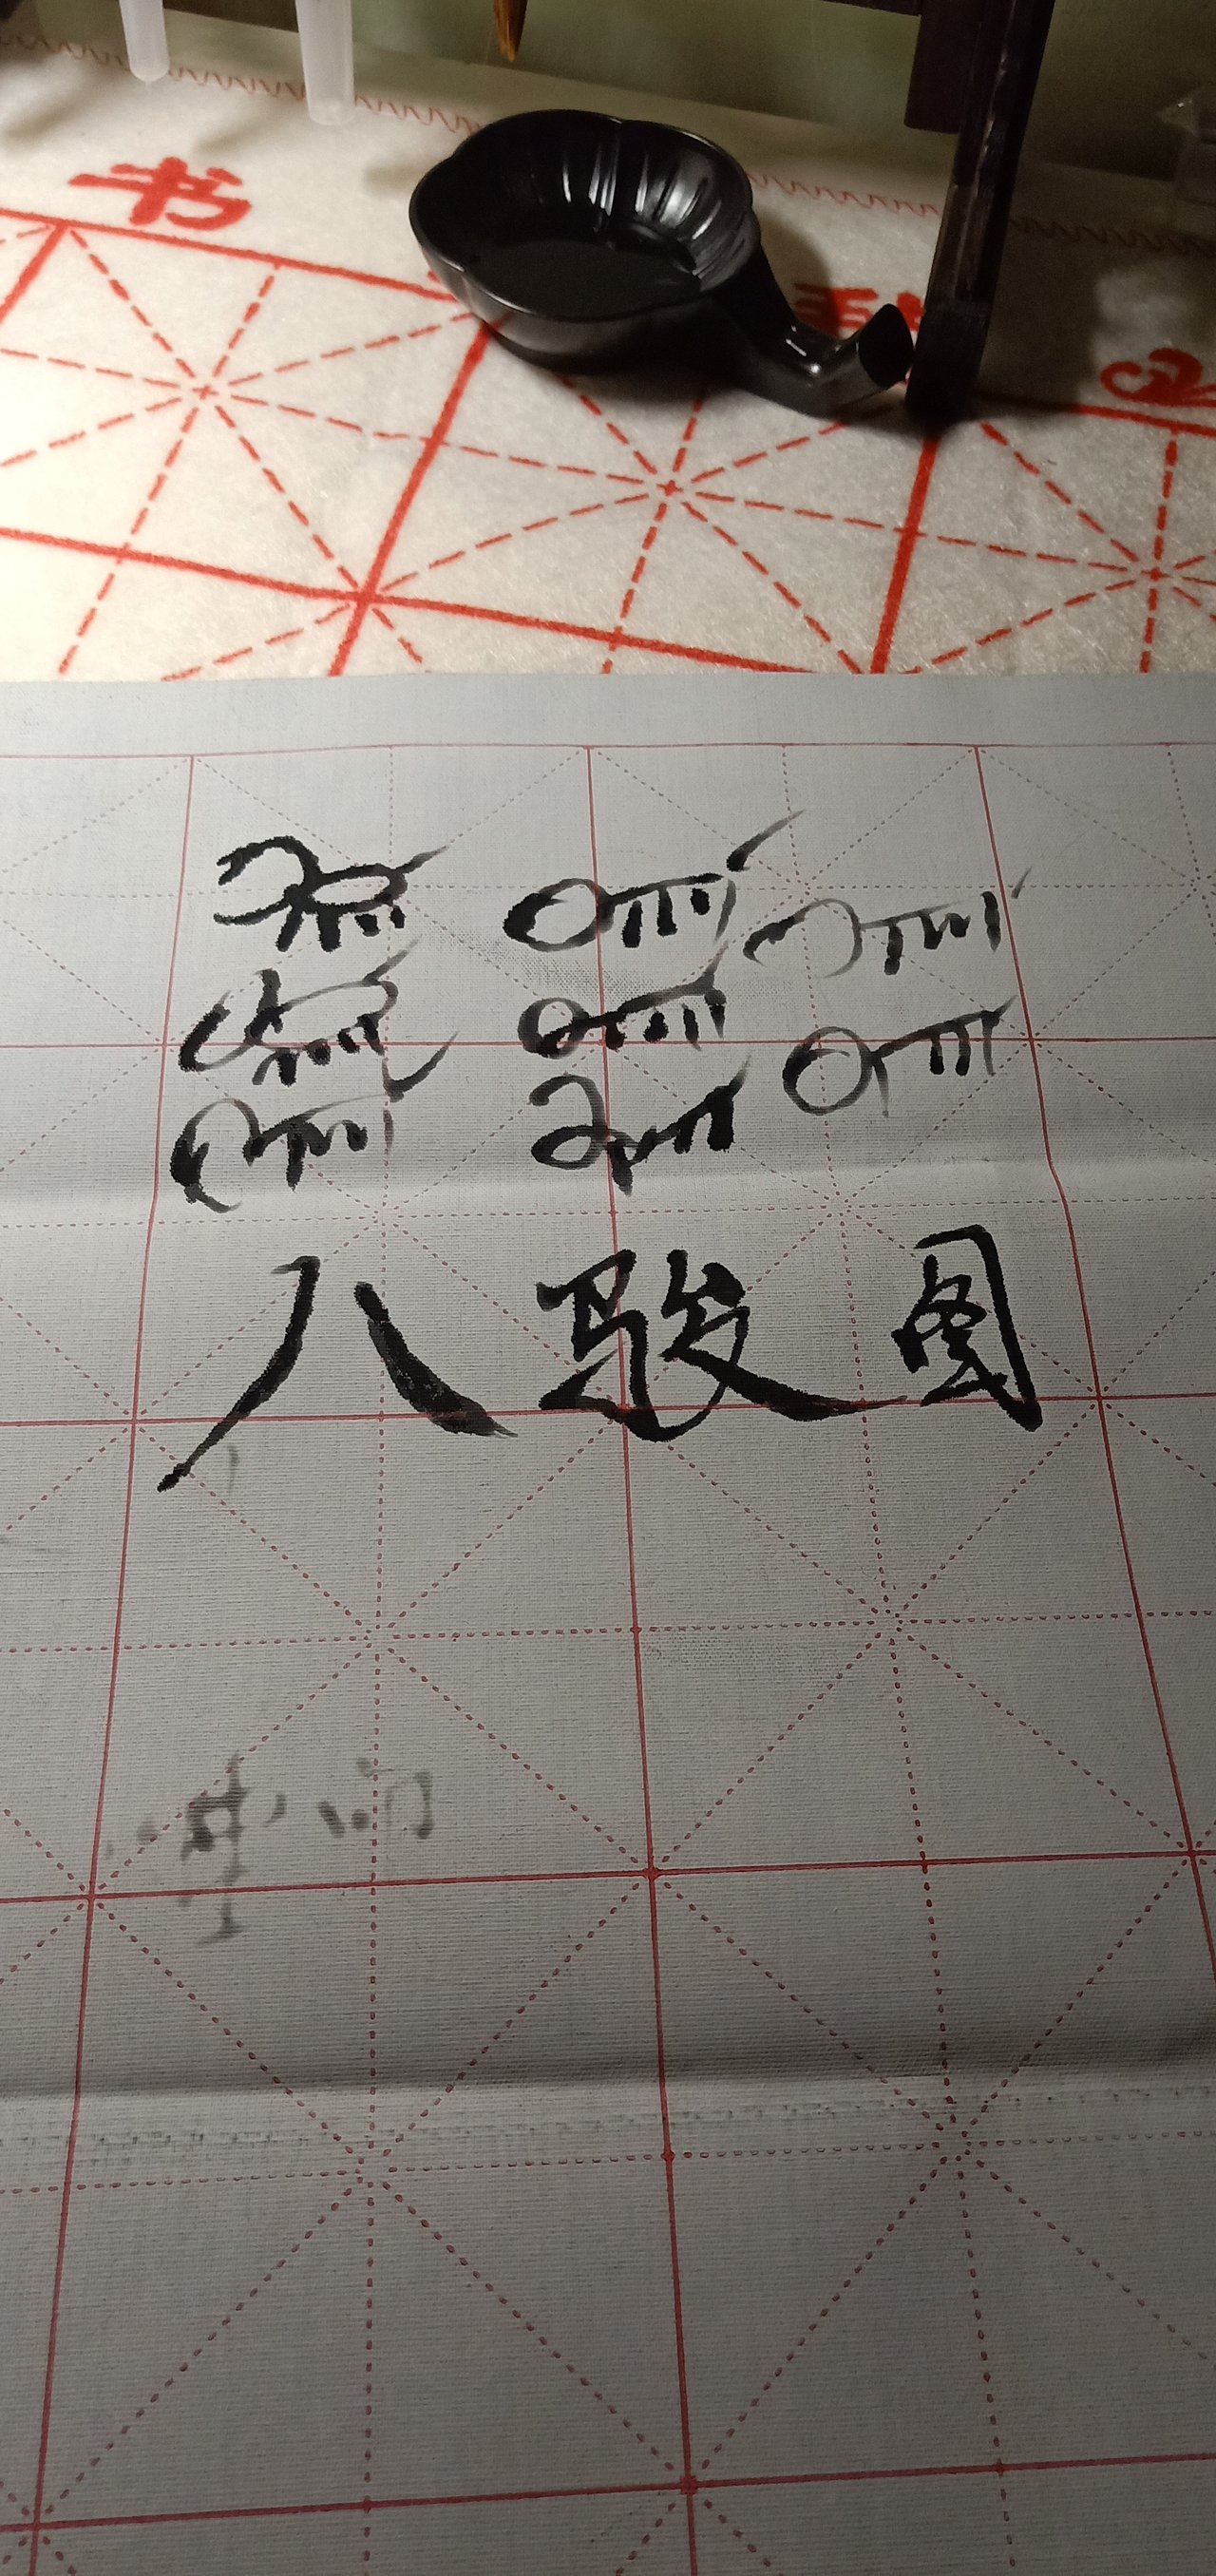 书
八骏图